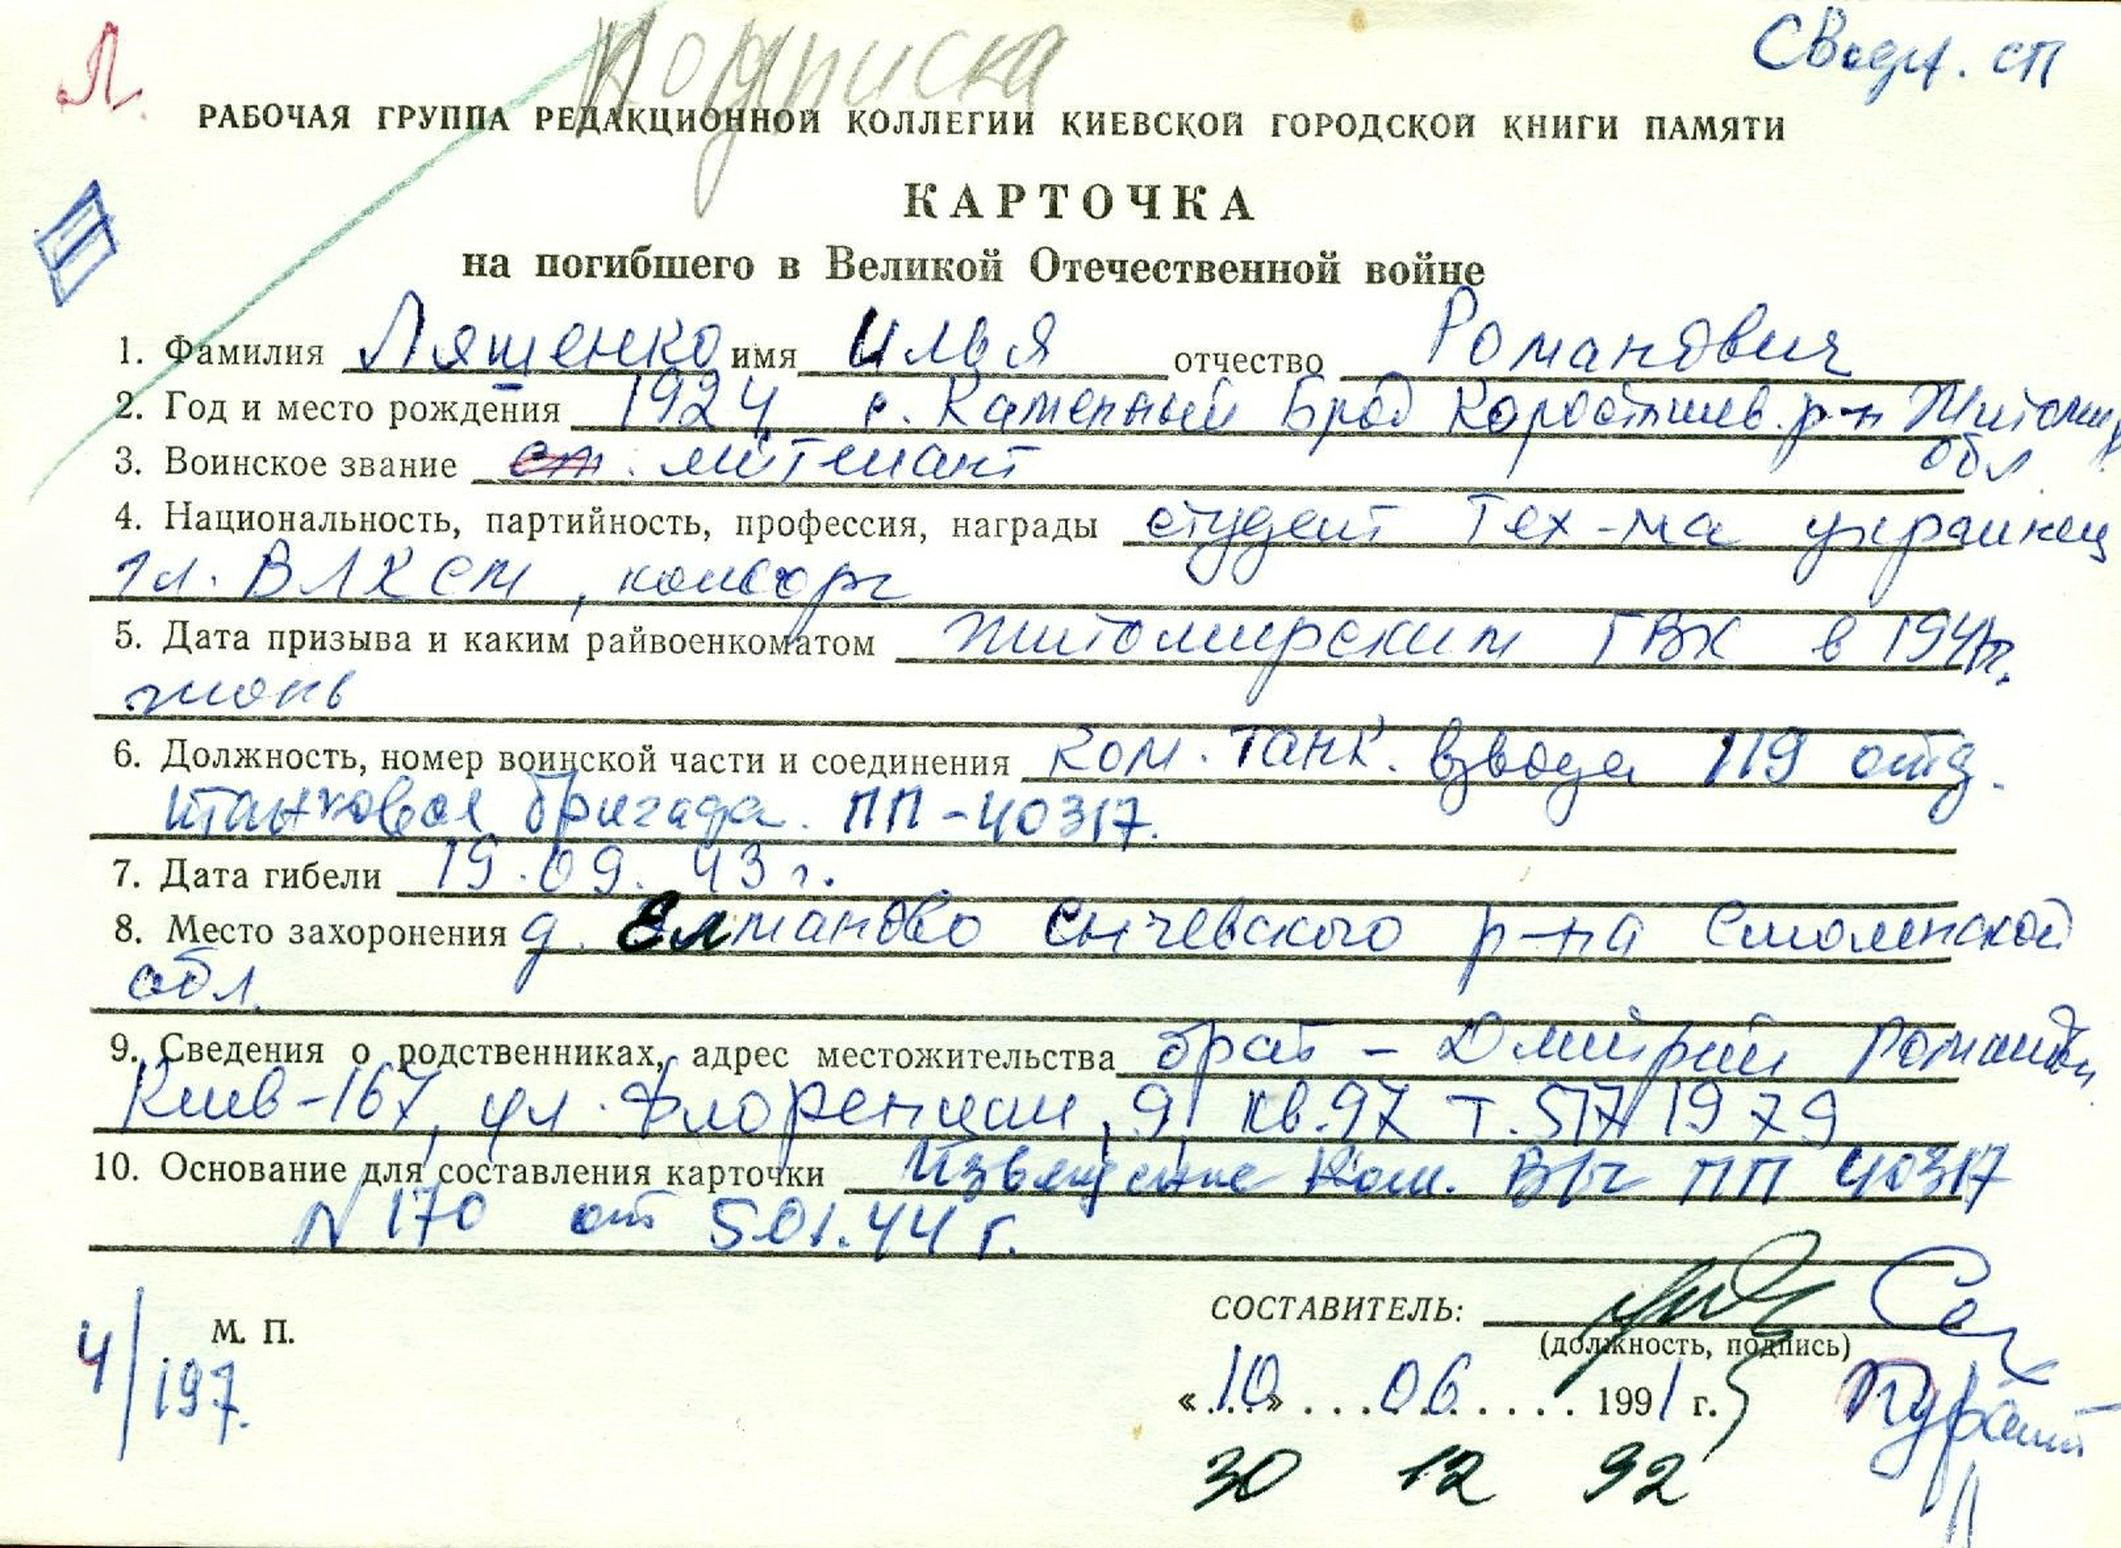 Л.
Подписка
Сводн. сп
РАБОЧАЯ ГРУППА РЕДАКЦИОННОЙ КОЛЛЕГИИ КИЕВСКОЙ ГОРОДСКОЙ КНИГИ ПАМЯТИ
КАРТОЧКА
на погибшего в Великой Отечественной войне
1. Фамилия Лященко имя Илья отчество Романович
2. Год и место рождения 1924 с. Каменный Брод Коростышев. р-н Житомир
обл.
3. Воинское звание ст. лейтенант
4. Национальность, партийность, профессия, награды студент Тех-ма украинец
чл. ВЛКСМ, комсорг
5. Дата призыва и каким райвоенкоматом Житомирским ГВК в 1941г.
июнь
6. Должность, номер воинской части и соединения Ком. танк. взвода 119 отд.
танковая бригада. ПП-40317.
7. Дата гибели 19.09.43 г.
8. Место захоронения д. Елманово Сычевского р-на Смоленской
обл.
9. Сведения о родственниках, адрес местожительства брат - Дмитрий Романович
Киев-167, ул. Флоренции, 9 кв.97 т. 517 19 79
10. Основание для составления карточки Извещение Ком. В/ч ПП 40317
N 170 от 5.01.44 г.
М. П.
4/197.
СОСТАВИТЕЛЬ:
(должность, подпись)
«10» 06 1991 г.
30 12 92